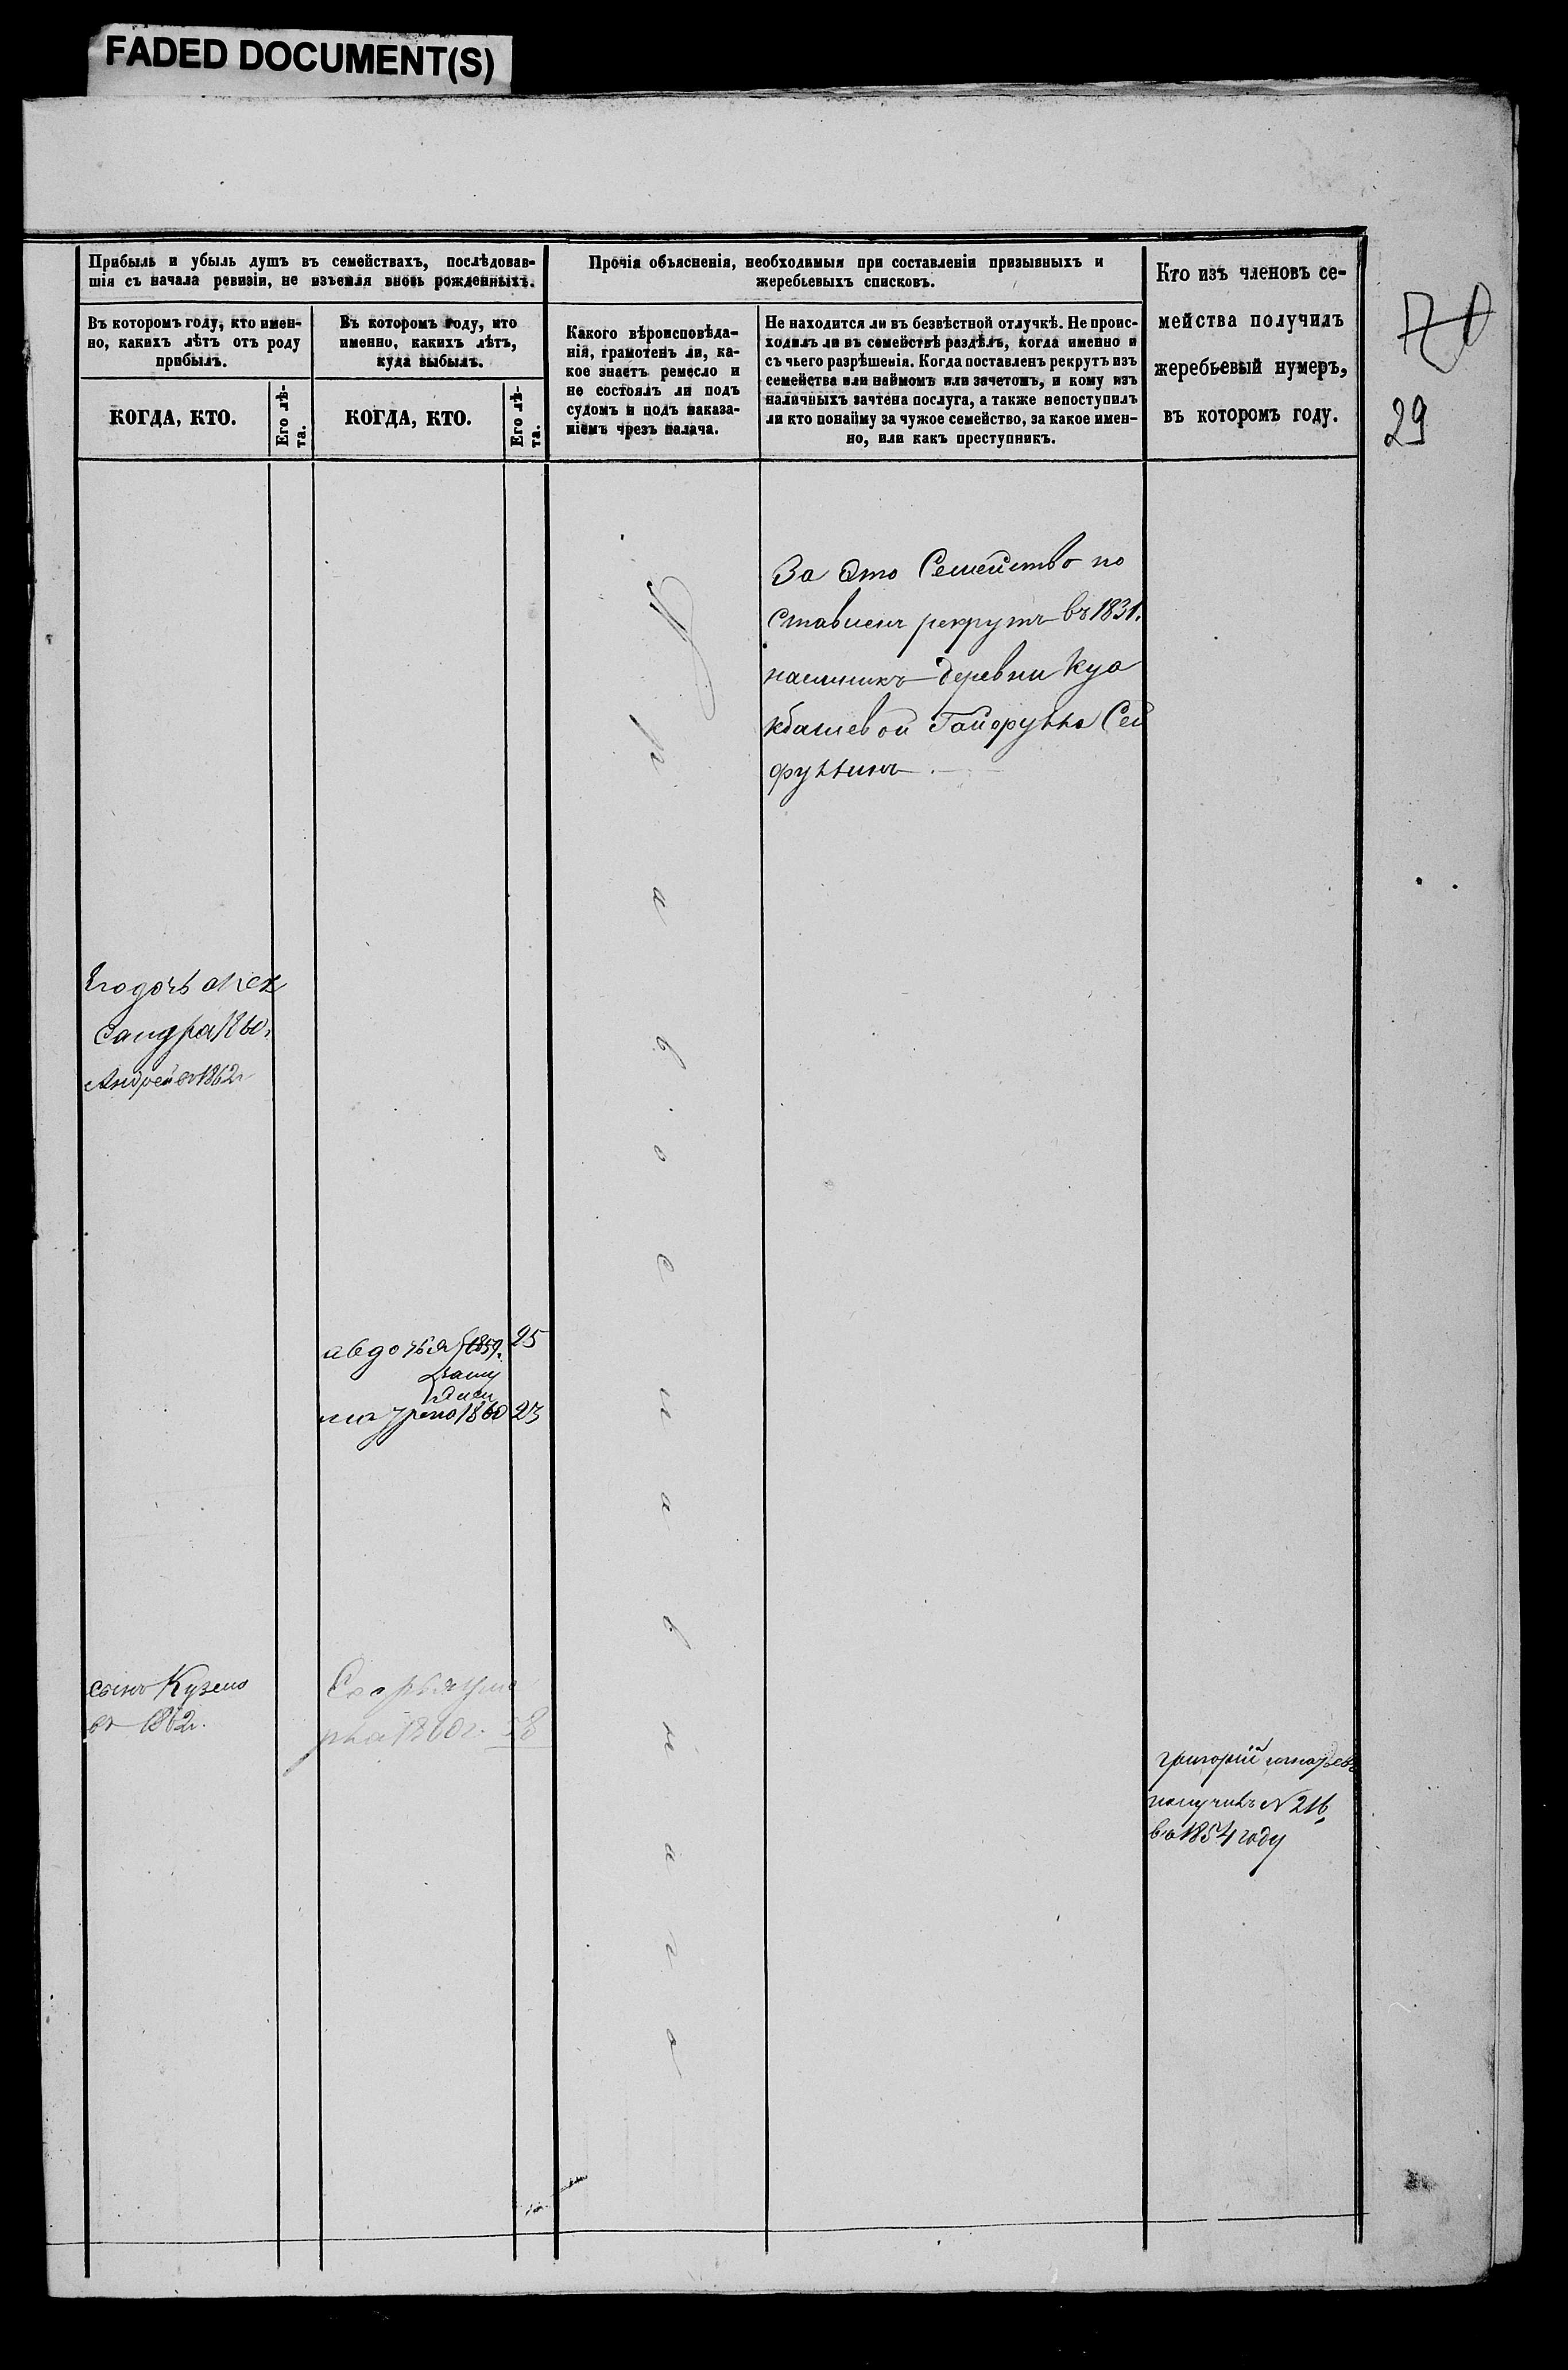 FADED DOCUMENT(S)
Прибыль и убыль душъ въ семействахъ, послѣдовав-
шія съ начала ревизіи, не изъемля вновь рожденныхъ.
Прочія объясненія, необходимыя при составленіи призывныхъ и
жеребьевыхъ списковъ.
Кто изъ членовъ се-
мейства получилъ
жеребьевый нумеръ,
въ которомъ году.
Въ которомъ году, кто имен-
но, какихъ лѣтъ отъ роду
прибылъ.
Въ которомъ году, кто
именно, какихъ лѣтъ,
куда выбылъ.
Какого вѣроисповѣда-
нія, грамотенъ ли, ка-
кое знаетъ ремесло и
не состоялъ ли подъ
судомъ и подъ наказа-
ніемъ чрезъ палача.
Не находится ли въ безвѣстной отлучкѣ. Не проис-
ходилъ ли въ семействѣ раздѣлъ, когда именно и
съ чьего разрѣшенія. Когда поставленъ рекрутъ изъ
семейства или наймомъ или зачетомъ, и кому изъ
наличныхъ зачтена послуга, а также непоступилъ
ли кто понайму за чужое семейство, за какое имен-
но, или какъ преступникъ.
КОГДА, КТО.
Его лѣ-
та.
КОГДА, КТО.
Его лѣ-
та.
70
29
За Это Семейство по
ставленъ рекрутъ въ 1831.
наемникъ деревни
Сей
Православнаго
его дочь Алек
сандра 1860г
Андрей въ 1862г
авдотья 1859. 25
заму
жеи
матрена 1860 23
сынъ Кузема
въ 1862г.
1860г. 58
григорий
получилъ N 216,
въ 1854 году